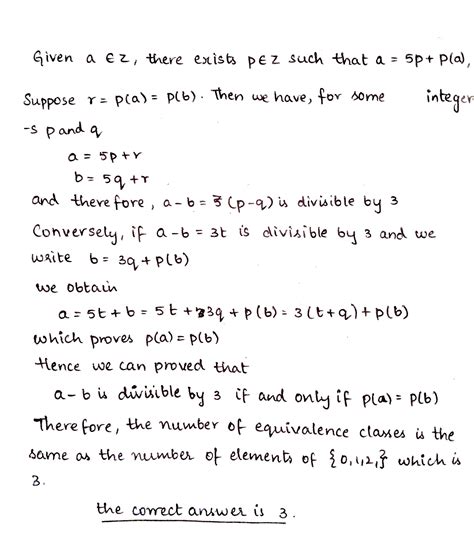 Given a ∈ Z, there exists p∈Z such that a = 5p + P(a),
Suppose r = P(a) = P(b). Then we have, for some integer
-s p and q
a = 5p + r
b = 5q + r
and therefore, a - b = 3 (p-q) is divisible by 3
Conversely, if a - b = 3t is divisible by 3 and we
write b = 3q + P(b)
we obtain
a = 5t + b = 5t + 3q + P(b) = 3(t+q) + P(b)
which proves P(a) = P(b)
Hence we can proved that
a - b is divisible by 3 if and only if P(a) = P(b)
Therefore, the number of equivalence classes is the
same as the number of elements of {0,1,2,} which is
3.
the correct answer is 3.